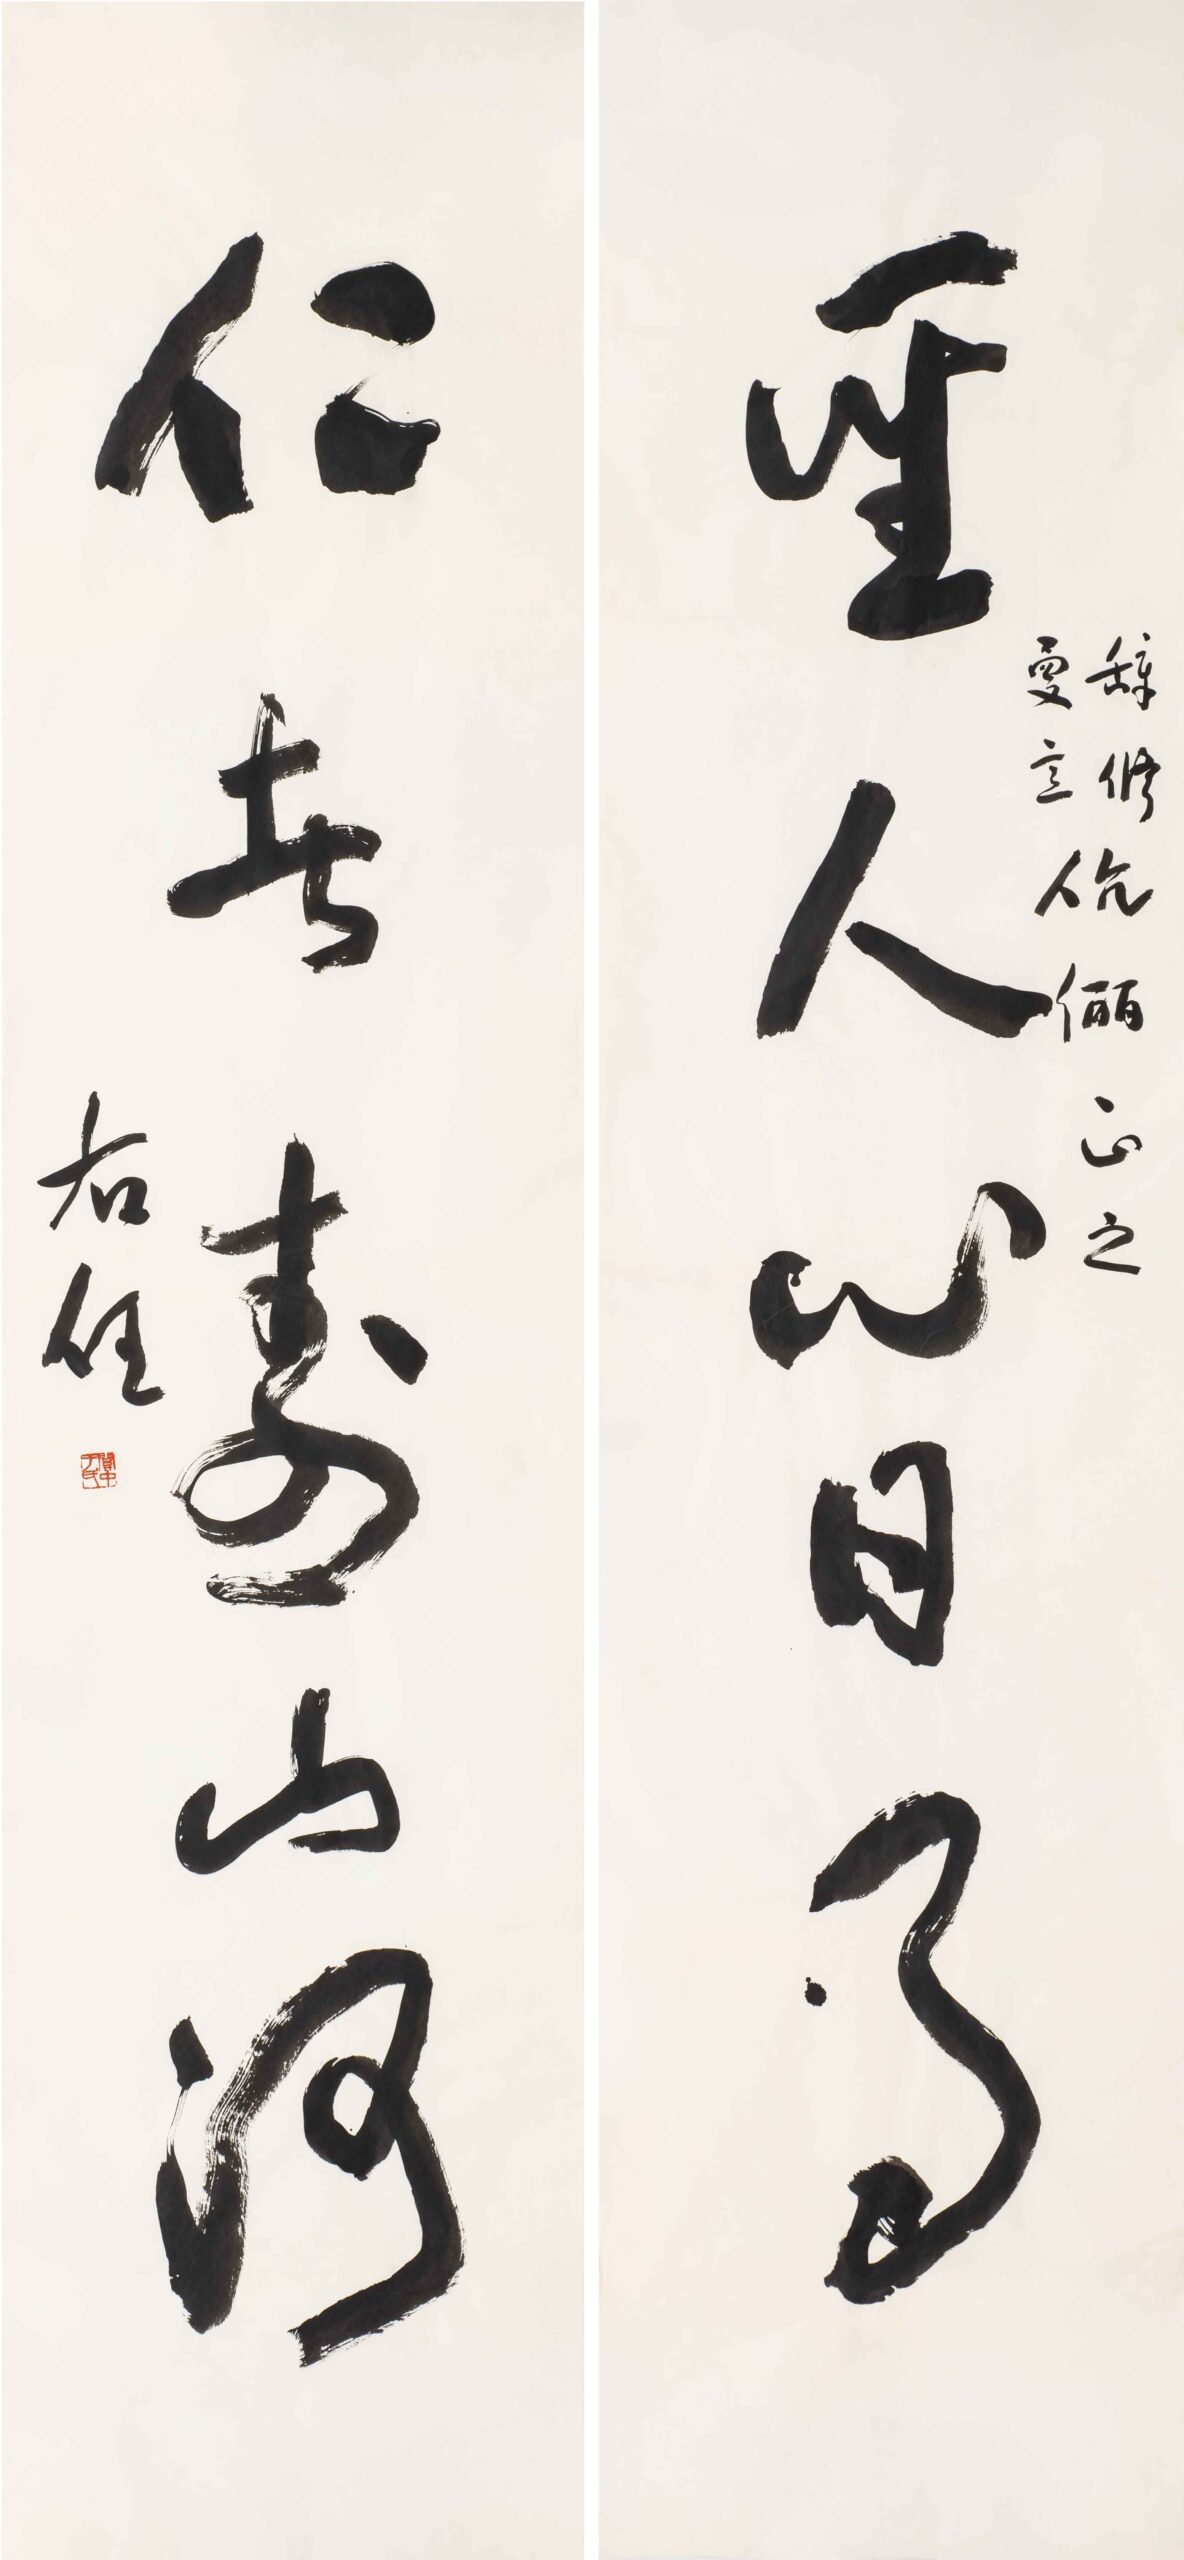 聖人心日月
辭修
曼意
伉儷正之
仁者壽山河
右任
關中于氏